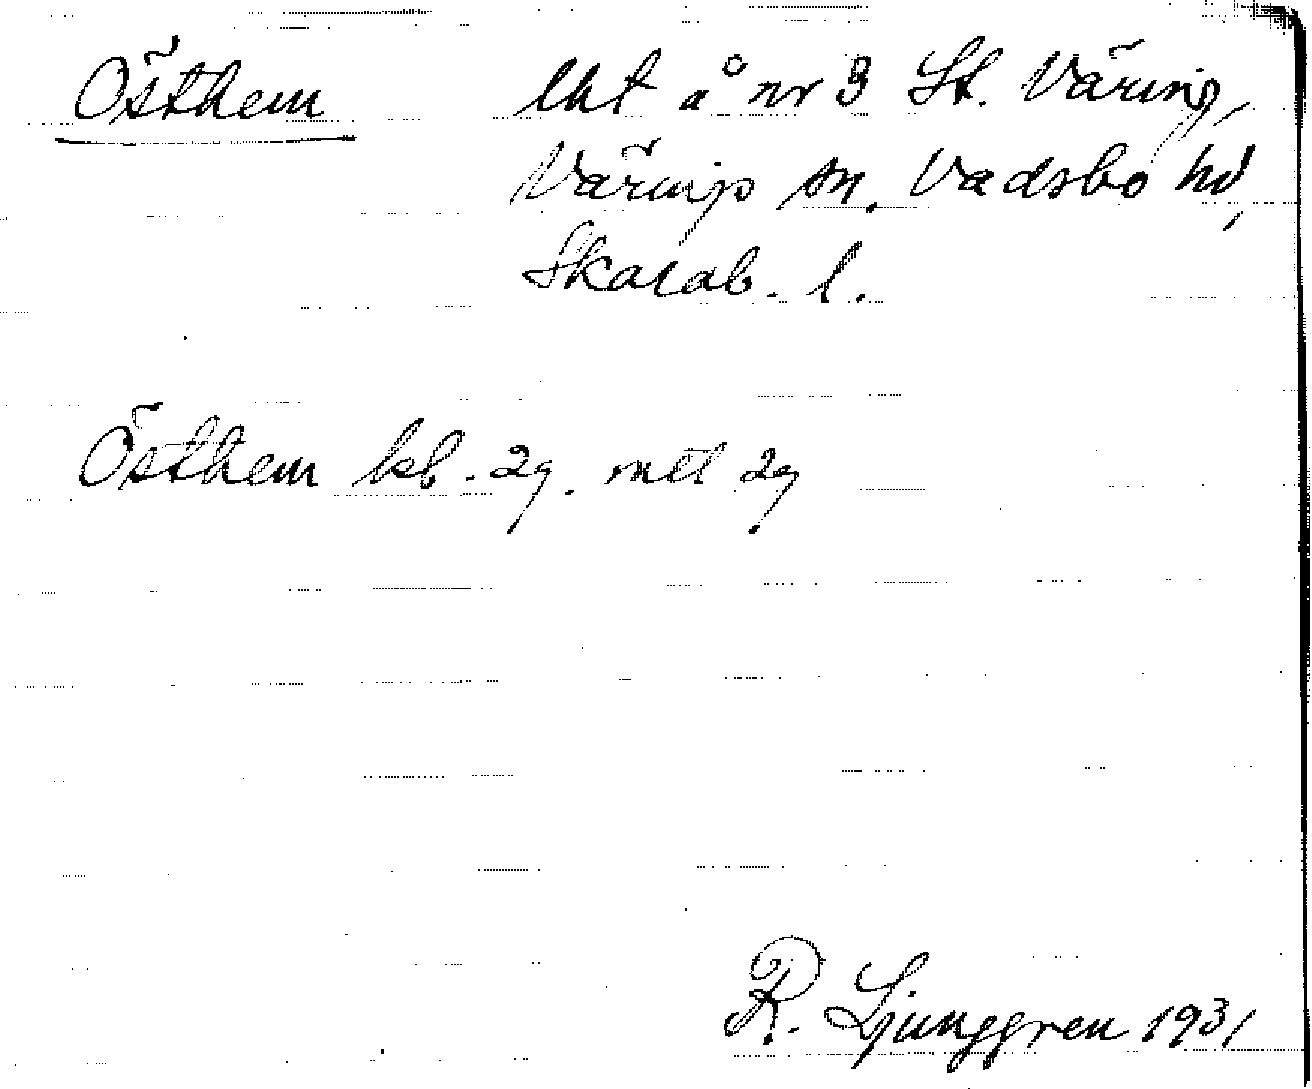 Östhem lht å nr 3 St. Väring,
Värings sn. Vadsbo hd,
Skarab. l.
Östhem kb. 29. mtl 29
R. Ljunggren 1931